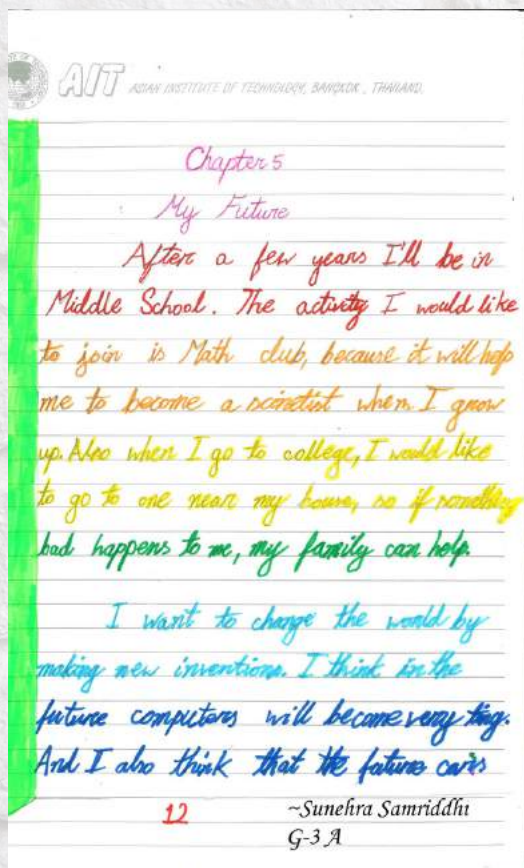 AIT ASIAN INSTITUTE OF TECHNOLOGY, BANGKOK , THAILAND.
Chapter 5
My Future
After a few years I'll be in
Middle School. The activity I would like
to join is Math club, because it will help
me to become a scinetist when I grow
up. Also when I go to college, I would like
to go to one near my house, so if something
bad happens to me, my family can help.
I want to change the world by
making new inventions. I think in the
future computers will become very
And I also think that the future cars
12
~Sunehra Samriddhi
G-3 A